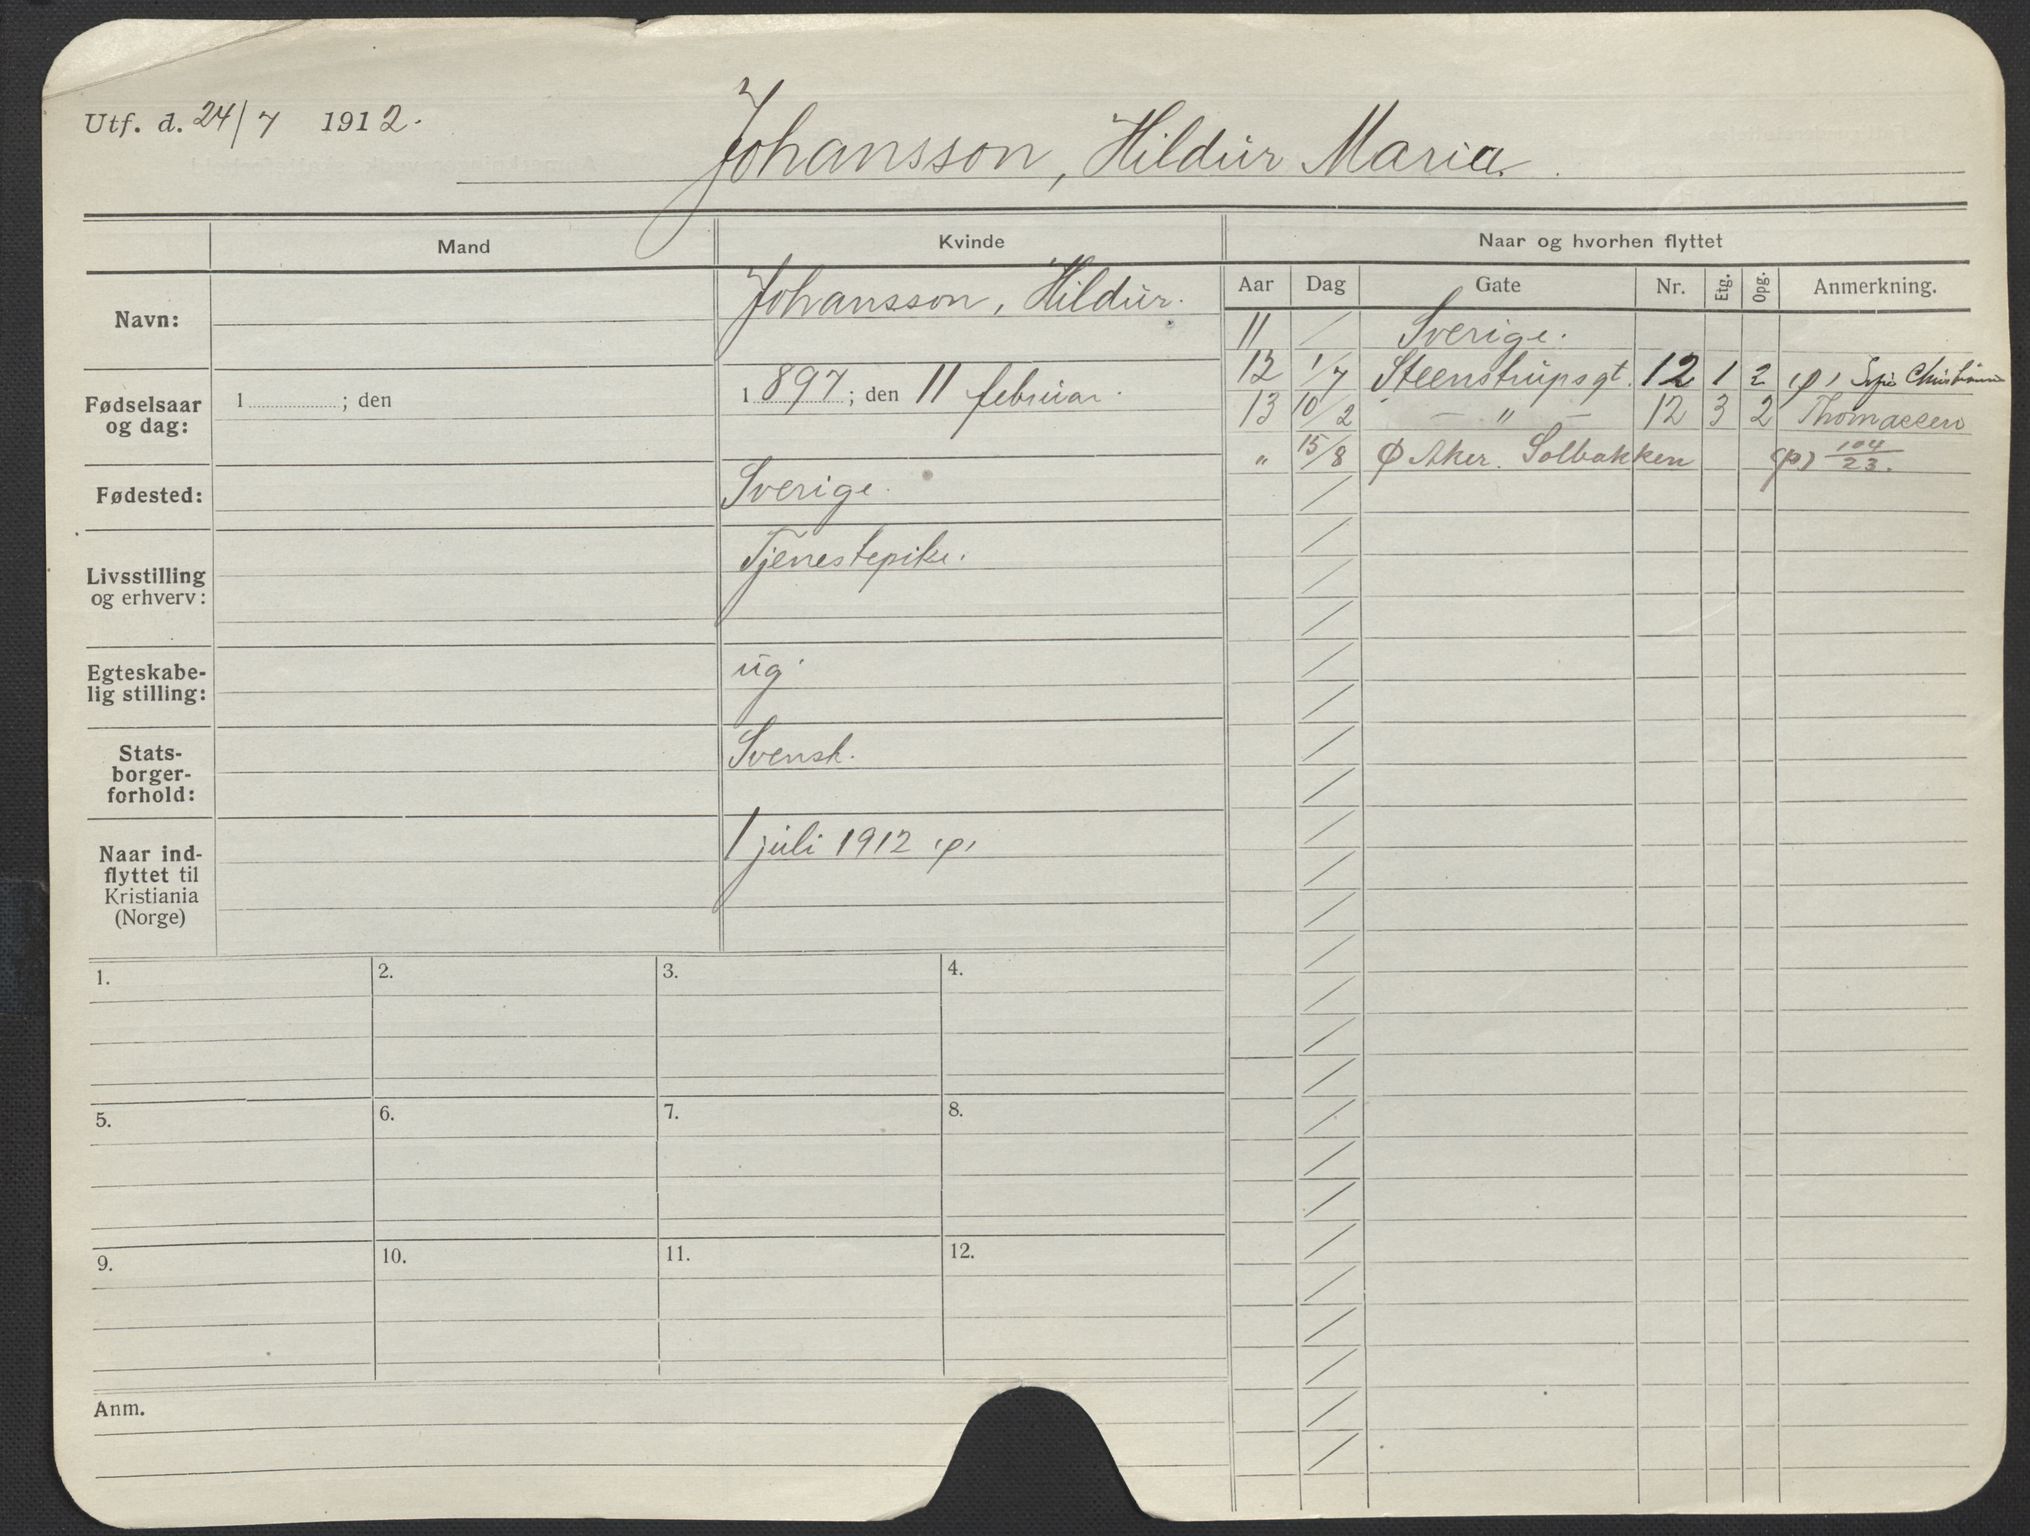 Utf. d. 24/7 1912.
Johansson, Hildur Maria.
Mand
Kvinde
Naar og hvorhen flyttet
Aar Dag Gate Nr. Etg. Opg. Anmerkning.
Navn:
Johansson, Hildur.
Fødselsaar og dag:
1 ; den
1897; den 11 februar.
Fødested:
Sverige.
Livsstilling og erhverv:
Tjenestepike.
Egteskabe-
lig stilling:
ug.
Stats-
borger-
forhold:
Svensk.
Naar ind-
flyttet til
Kristiania
(Norge)
1 juli 1912 (p)
11 / Sverige.
12 1/7 Steenstrupsgt. 12 1 2 (p)
13 10/2 — " — 12 3 2 Thomassen
" 15/8 Ø Aker. Solbakken (p) 104/23.
1.
2.
3.
4.
5.
6.
7.
8.
9.
10.
11.
12.
Anm.